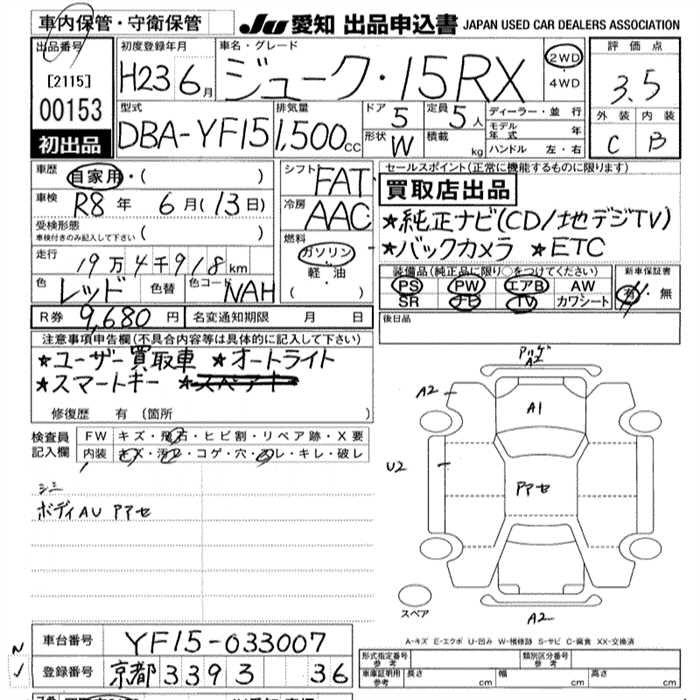 車内保管・守衛保管
JU 愛知 出品申込書 JAPAN USED CAR DEALERS ASSOCIATION
出品番号
[2115]
00153
初出品
初度登録年月
H23 6月
車名・グレード
ジューク・15RX
2WD
・
4WD
評価点
3.5
外装 内装
C B
型式
DBA-YF15
排気量
1,500cc
ドア 5
定員 5人
形状 W
積載 kg
ディーラー・並行
モデル年式 年
ハンドル 左・右
車歴
自家用・( )
車検
R8年 6月(13日)
受検形態
車検付きのみ記入して下さい ( )
走行
19万4千918km
色 レッド 色替 色コード NAH
シフト
FAT
冷房
AAC
燃料
ガソリン
軽・油
( )
セールスポイント(正常に機能するものに限ります)
買取店出品
★純正ナビ(CD/地デジTV)
★バックカメラ ★ETC
装備品(純正品に限り○をつけてください)
PS PW エアB AW
SR ナビ TV カワシート
新車保証書
有・無
R券 9,680円
名変通知期限 月 日
後日品
注意事項申告欄(不具合内容等は具体的に記入して下さい)
★ユーザー買取車 ★オートライト
★スマートキー ★スペアキー
修復歴 有 (箇所 )
検査員
記入欄
FW キズ・飛石・ヒビ割・リペア跡・X要
内装 キズ・汚レ・コゲ・穴・スレ・キレ・破レ
シミ
ボディAU アアセ
A2
A2
A1
U2
アアセ
A2
スペア
A-キズ E-エクボ U-凹み W-補修跡 S-サビ C-腐食 XX-交換済
車台番号 YF15-033007
登録番号 京都 339 3 36
形式指定番号
参考
類別区分番号
参考
車庫証明用
参考
長さ cm
幅 cm
高さ cm